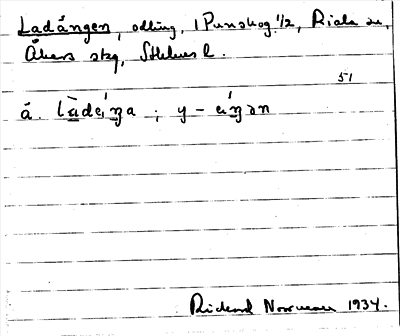 Ladängen, odling, 1 Punskog 1/2, Riala sn,
Åkers skg, Sthlms l.
51
å. lɑ̀deíŋa ; y – eíŋən
Rickard Norrman 1934.